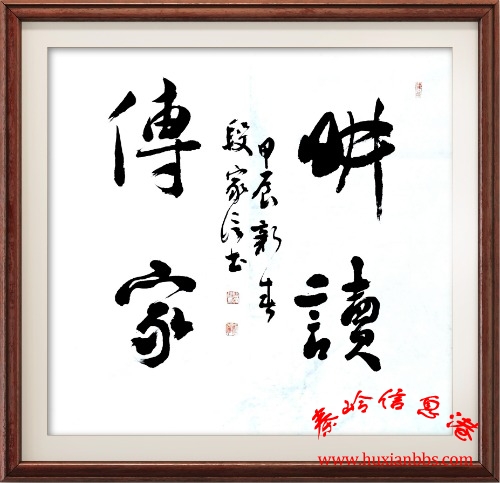 畊讀
傳家
甲辰新春
段家信书
秦岭信息港
www.huxianbbs.com